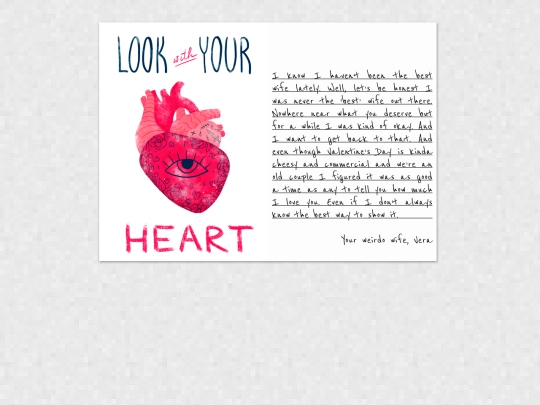 LOOK with YOUR
HEART
I know I havent been the best
wife lately. Well, let's be honest I
was never the 'best' wife out there.
Nowhere near what you deserve but
for a while I was kind of okay. And
I want to get back to that. And
even though Valentine's Day is kinda
cheesy and commercial and we're an
old couple I figured it was as good
a time as any to tell you how much
I love you. Even if I don't always
know the best way to show it.
Your weirdo wife, Vera